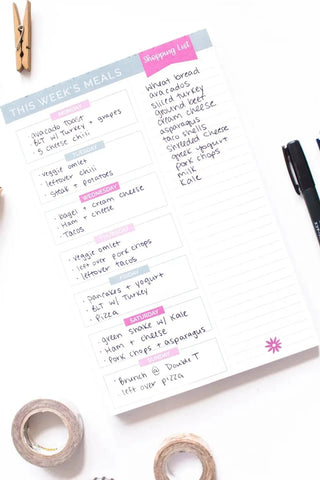 THIS WEEK'S MEALS
MONDAY
avocado toast
BLT w/ Turkey + grapes
3 cheese chili
TUESDAY
veggie omlet
leftover chili
steak + potatoes
WEDNESDAY
bagel + cream cheese
Ham + cheese
Tacos
THURSDAY
veggie omlet
left over pork chops
leftover tacos
FRIDAY
pancakes + yogurt
BLT w/ Turkey
Pizza
SATURDAY
green shake w/ kale
Ham + cheese
Pork chops + asparagus
SUNDAY
Brunch @ Doubl T
left over pizza
Shopping List
wheat bread
avacados
sliced turkey
ground beef
cream cheese
asparagus
taco shells
shreded cheese
greek yogurt
pork chops
milk
kale